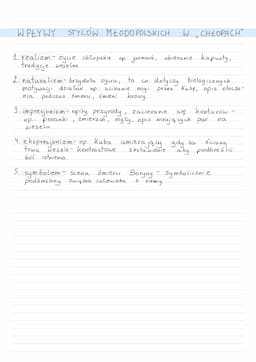 WPŁYWY STYLÓW MŁODOPOLSKICH W „CHŁOPACH"
1. realizm - życie chłopskie np. jarmark, obieranie kapusty,
tradycje weselne
2. naturalizm - brzydota życia, to co dotyczy biologicznych
motywacji działań np. ucinanie nogi przez Kubę, opis
nia podczas śmierci krowy
3. impresjonizm - opisy przyrody, zacieranie się konturów -
np. poranki, zmierzch, mgły, opis wirujących par na
weselu
4. ekspresjonizm - np. Kuba umierający gdy za ścianą
trwa wesele - kontrastowe zestawienie aby podkreślić
ból istnienia
5. symbolizm - scena śmierci Boryny - symbolicznie
podkreślony związek człowieka z ziemią